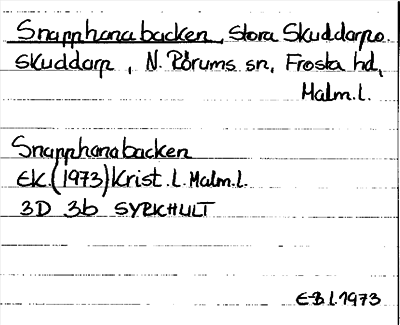 Snapphanabacken, Stora Skuddarp o.
Skuddarp, N. Rörums sn, Frosta hd,
Malm.l.
Snapphanabacken
EK.(1973) Krist.l. Malm.l.
3D 3b SYRKHULT
E-B l.1973